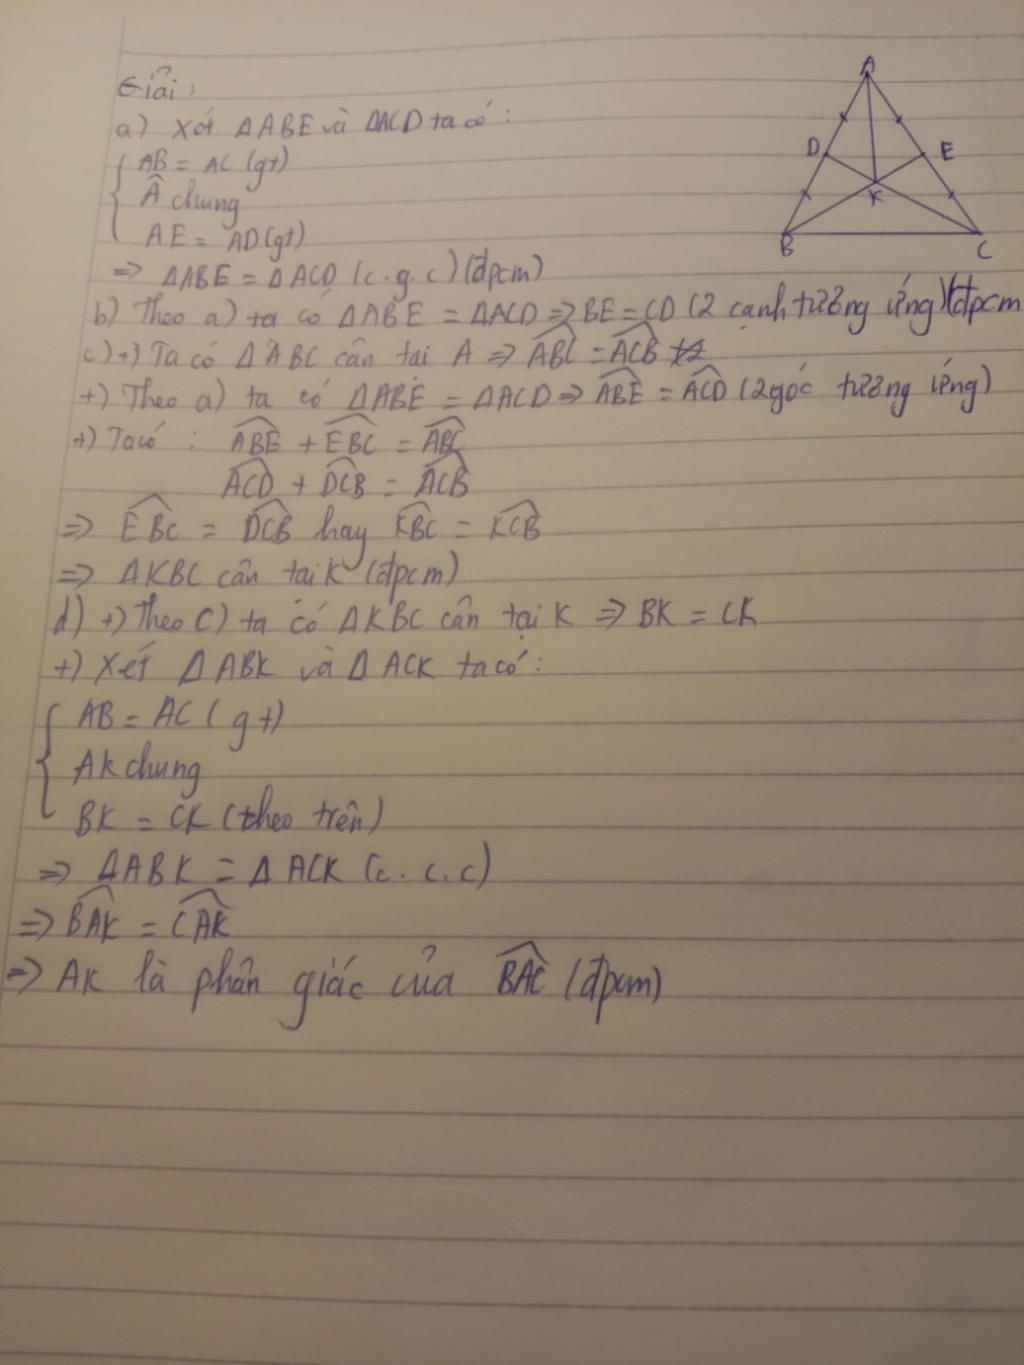 Giải:
a) Xét ΔABE và ΔACD ta có:
AB = AC (gt)
Â chung
AE = AD (gt)
=> ΔABE = ΔACD (c.g.c) (đpcm)
b) Theo a) ta có ΔABE = ΔACD => BE = CD (2 cạnh tương ứng) (đpcm
c) +) Ta có ΔABC cân tại A => \widehat{ABC} = \widehat{ACB}
+) Theo a) ta có ΔABE = ΔACD => \widehat{ABE} = \widehat{ACD} (2 góc tương ứng)
+) Ta có: \widehat{ABE} + \widehat{EBC} = \widehat{ABC}
\widehat{ACD} + \widehat{DCB} = \widehat{ACB}
=> \widehat{EBC} = \widehat{DCB} hay \widehat{KBC} = \widehat{KCB}
=> ΔKBC cân tại K (đpcm)
d) +) Theo c) ta có ΔKBC cân tại K => BK = CK
+) Xét ΔABK và ΔACK ta có:
AB = AC (gt)
AK chung
BK = CK (theo trên)
=> ΔABK = ΔACK (c.c.c)
=> \widehat{BAK} = \widehat{CAK}
=> AK là phân giác của \widehat{BAC} (đpcm)
A
D
E
K
B
C